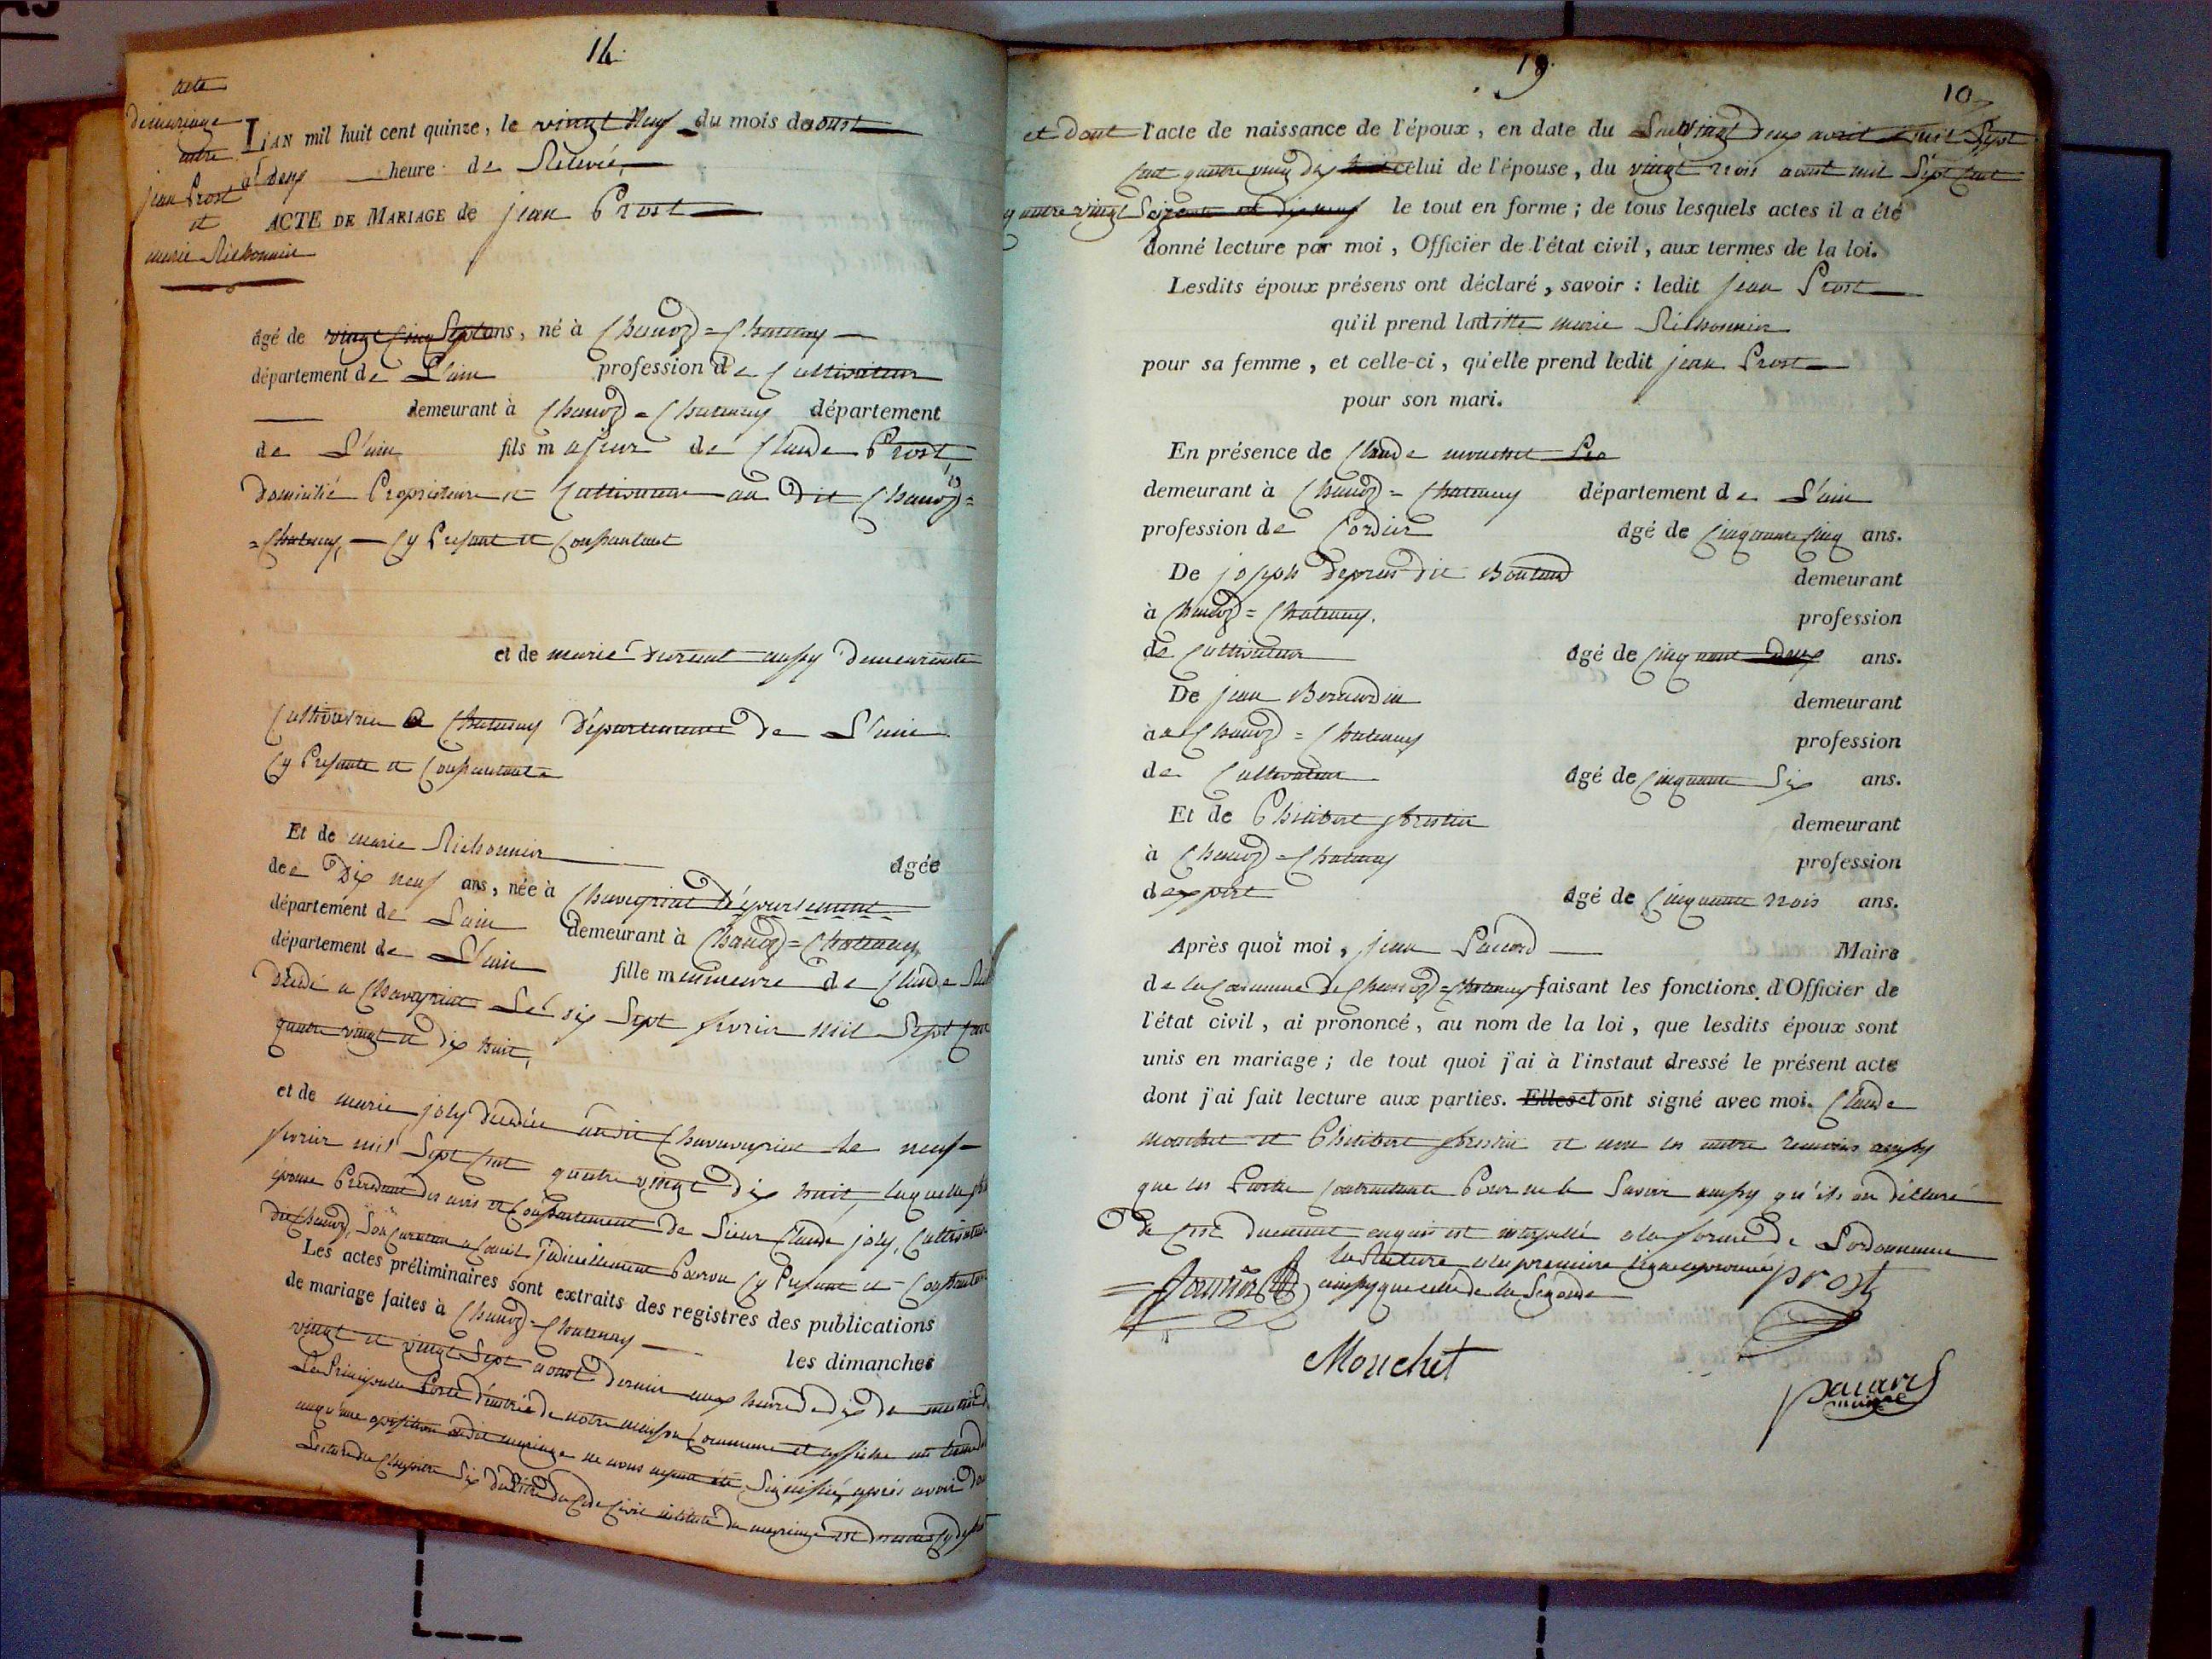 14
acte
de mariage
entre
jean Prost
et
marie Richonnier
L'AN mil huit cent quinze, le vingt neuf du mois daoust
a deux heure de Relevée,
ACTE DE MARIAGE de jean Prost
âgé de vingt cinq ans, né à Chanoz = Chatenay
département de L'ain profession de Cultivateur
demeurant à Chanoz = Chatenay département
de L'ain fils majeur de Claude Prost,
domicilié Propriétaire et Cultivateur au dit Chanoz =
= Chatenay, Cy Present et Consentant
et de marie aussy demeurante
Cultivatrice a Chatenay Département de L'ain
Cy Presente et Consentante
Et de marie Richonnier âgée
de Dix neuf ans, née à Chaveyriat Département
département de Lain demeurant à Chanoz = Chatenay,
département de L'ain fille mineure de Claude
décédé a Chaveyriat Le dix Sept fevrier mil Sept Cent
quatre vingt et dix huit,
et de marie joly décédée audit Chaveyriat le neuf
fevrier mil Sept Cent quatre vingt dix huit, laquelle
épouse Procédant des avis et Consentement de Sieur Claude joly, Cultivateur
du Chanoz, Son Curateur a Conseil judiciellement Pourvu Cy Present et Consentant
Les actes préliminaires sont extraits des registres des publications
de mariage faites à Chanoz = Chatenay les dimanches
vingt et vingt Sept aoust dernier aux heures de dix du matin
La Principale Porte d'entrée de notre maison Commune et affiche
auqu'une opposition audit mariage ne nous ayant été Signifiée, après avoir
Lecture du Chapitre Six du titre du Code Civil intitulé du mariage
19
10
et dont l'acte de naissance de l'époux, en date du vingt deux avril mil Sept
Cent quatre vingt dix celui de l'épouse, du vingt trois aoust mil Sept Cent
quatre vingt Seize le tout en forme; de tous lesquels actes il a été
donné lecture par moi, Officier de l'état civil, aux termes de la loi.
Lesdits époux présens ont déclaré, savoir: ledit jean Prost
qu'il prend laditte marie Richonnier
pour sa femme, et celle-ci, qu'elle prend ledit jean Prost
pour son mari.
En présence de Claude mouchet
demeurant à Chanoz = Chatenay département de L'ain
profession de Cordier âgé de Cinquante Cinq ans.
De joseph deprès dit demeurant
à Chanoz = Chatenay. profession
de Cultivateur âgé de Cinquante Deux ans.
De jean Bernardin demeurant
à Chanoz = Chatenay profession
de Cultivateur âgé de Cinquante Six ans.
Et de Philibert demeurant
à Chanoz = Chatenay profession
dexpert âgé de Cinquante trois ans.
Après quoi moi, jean Pacard Maire
de la Commune de Chanoz = Chatenay faisant les fonctions d'Officier de
l'état civil, ai prononcé, au nom de la loi, que lesdits époux sont
unis en mariage; de tout quoi j'ai à l'instaut dressé le présent acte
dont j'ai fait lecture aux parties. Elles et ont signé avec moi. Claude
mouchet et Philibert et non les autre temoins aussy
que les Partie Contractante Pour ne le Savoir aussy qu'ils on déclaré
de Ce duement enquis et interpellé a la forme de Lordonnance
la Rature a la premiere ligne approuvée prost
ainsy que celle de la Segonde
Mouchet
pacard
maire